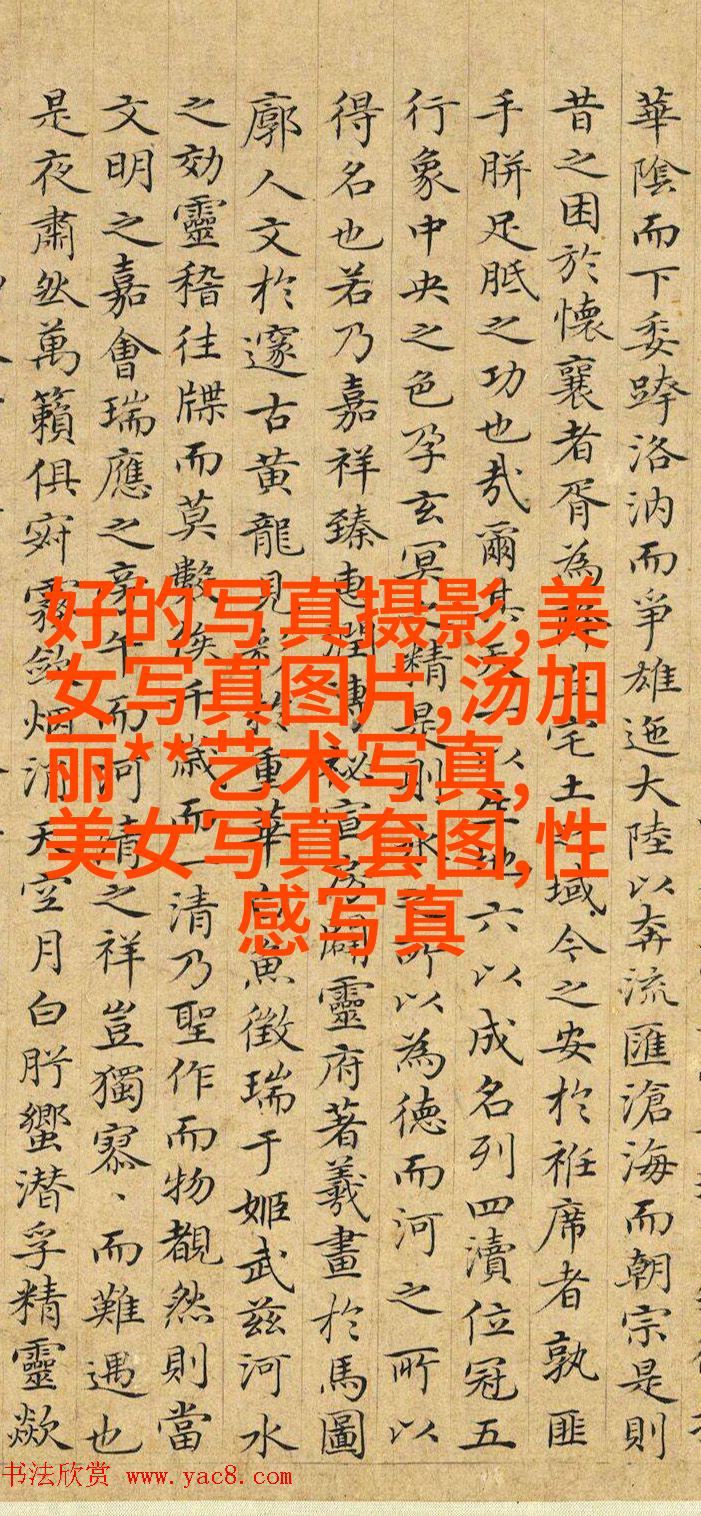 華陰而下委跨洛汭而爭雄迤大陸以奔流匯滄海而朝宗是則
昔之困於懷襄者胥為宅土之域今之安於袵席者孰匪
手胼足胝之功也哉爾其天一以生地六以成名列四瀆位冠五
行象中央之色孕玄冥之精是則水之所以為德而河之所以
得名也若乃嘉祥臻秘宣乃闢靈府著羲畫於馬圖
廓人文於邃古黃龍見重華白魚徵瑞于姬武茲河水
之効靈稽往牒而莫數俟千歲而一清乃聖作而物覩然則當
文明之嘉會瑞應之旁午而河清之祥豈獨寡、而難遇也
是夜肅然萬籟俱寂霧斂烟消天空月白肸蠁潛孚精靈歘
好的写真摄影,美
女写真图片,汤加
丽**艺术写真,
美女写真套图,性
感写真
书法欣赏 www.yac8.com